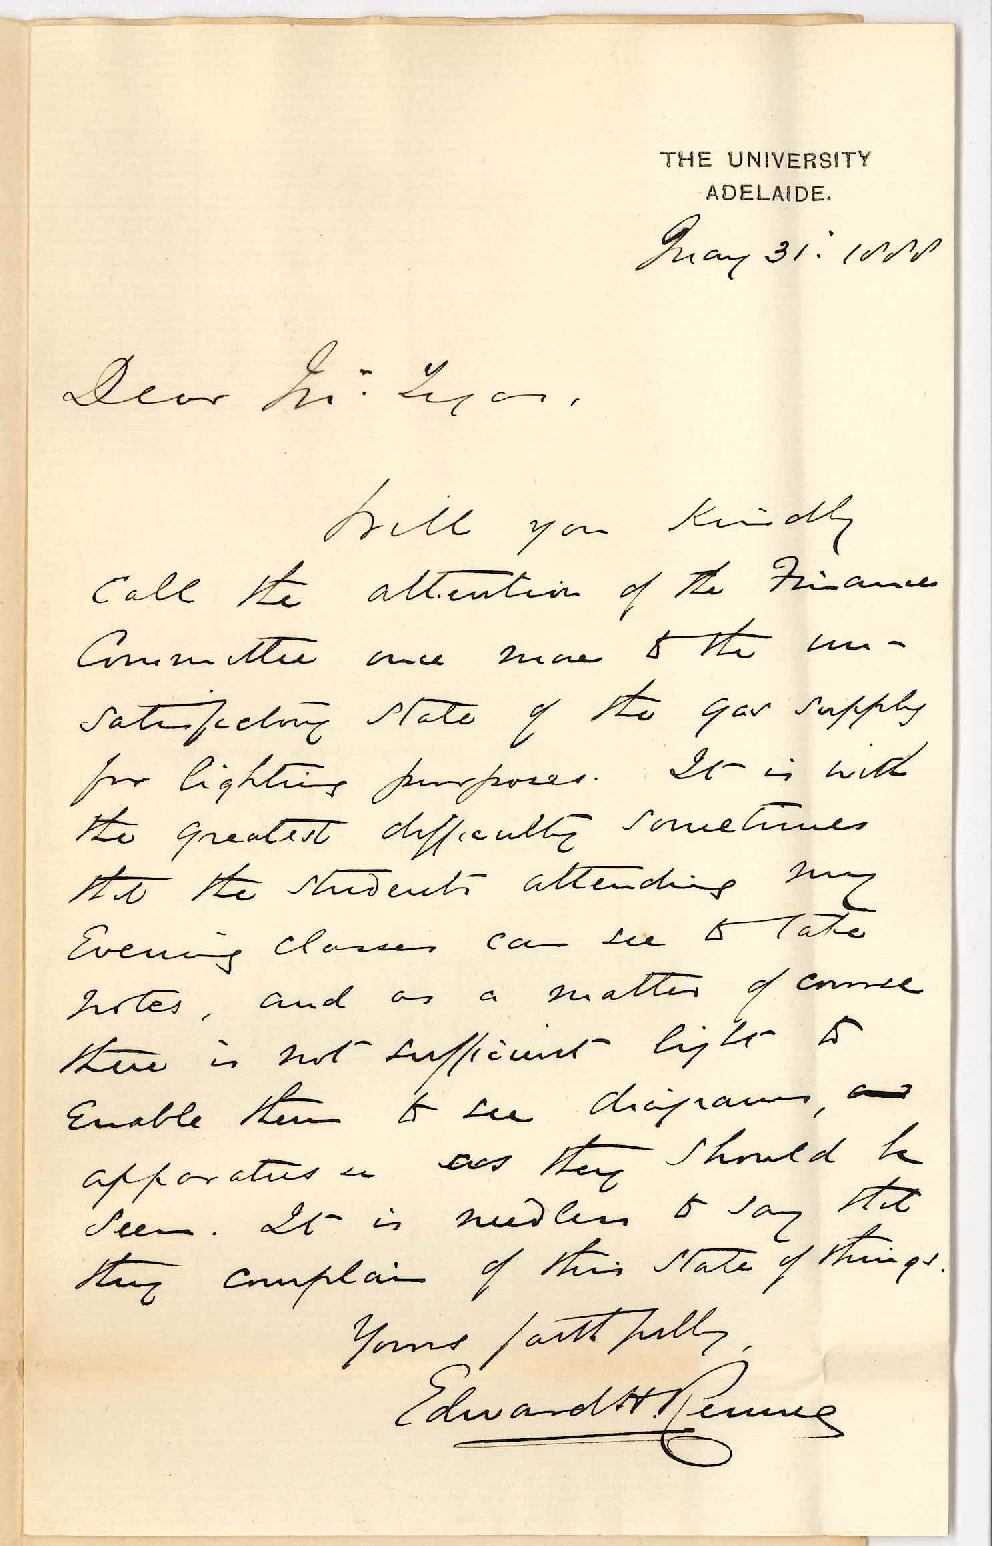 THE UNIVERSITY
ADELAIDE.
May 31: 1888
Dear Mr. Tyas,
Will you kindly
call the attention of the Finance
Committee once more to the un-
satisfactory state of the gas supply
for lighting purposes. It is with
the greatest difficulty sometimes
that the students attending my
Evening classes can see to take
notes, and as a matter of course
there is not sufficient light to
Enable them to see diagrams,
apparatus as they should be
seen. It is needless to say that
they complain of this state of things.
Yours faithfully,
Edward H. Rennie